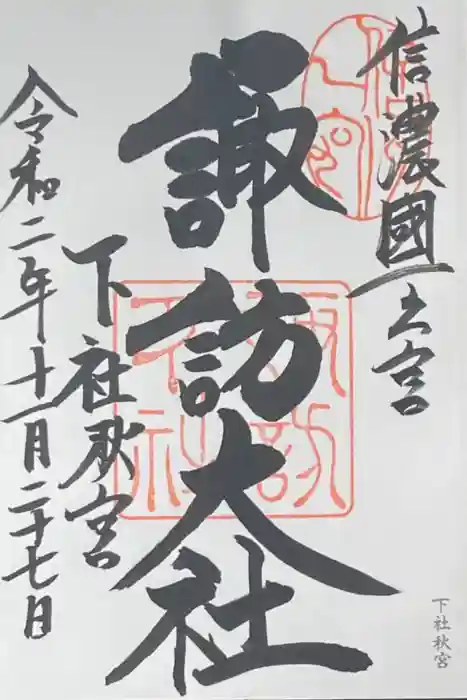 信濃國一之宮
諏訪大社
下社秋宮
令和二年十一月二十七日
諏訪
下社
下社秋宮